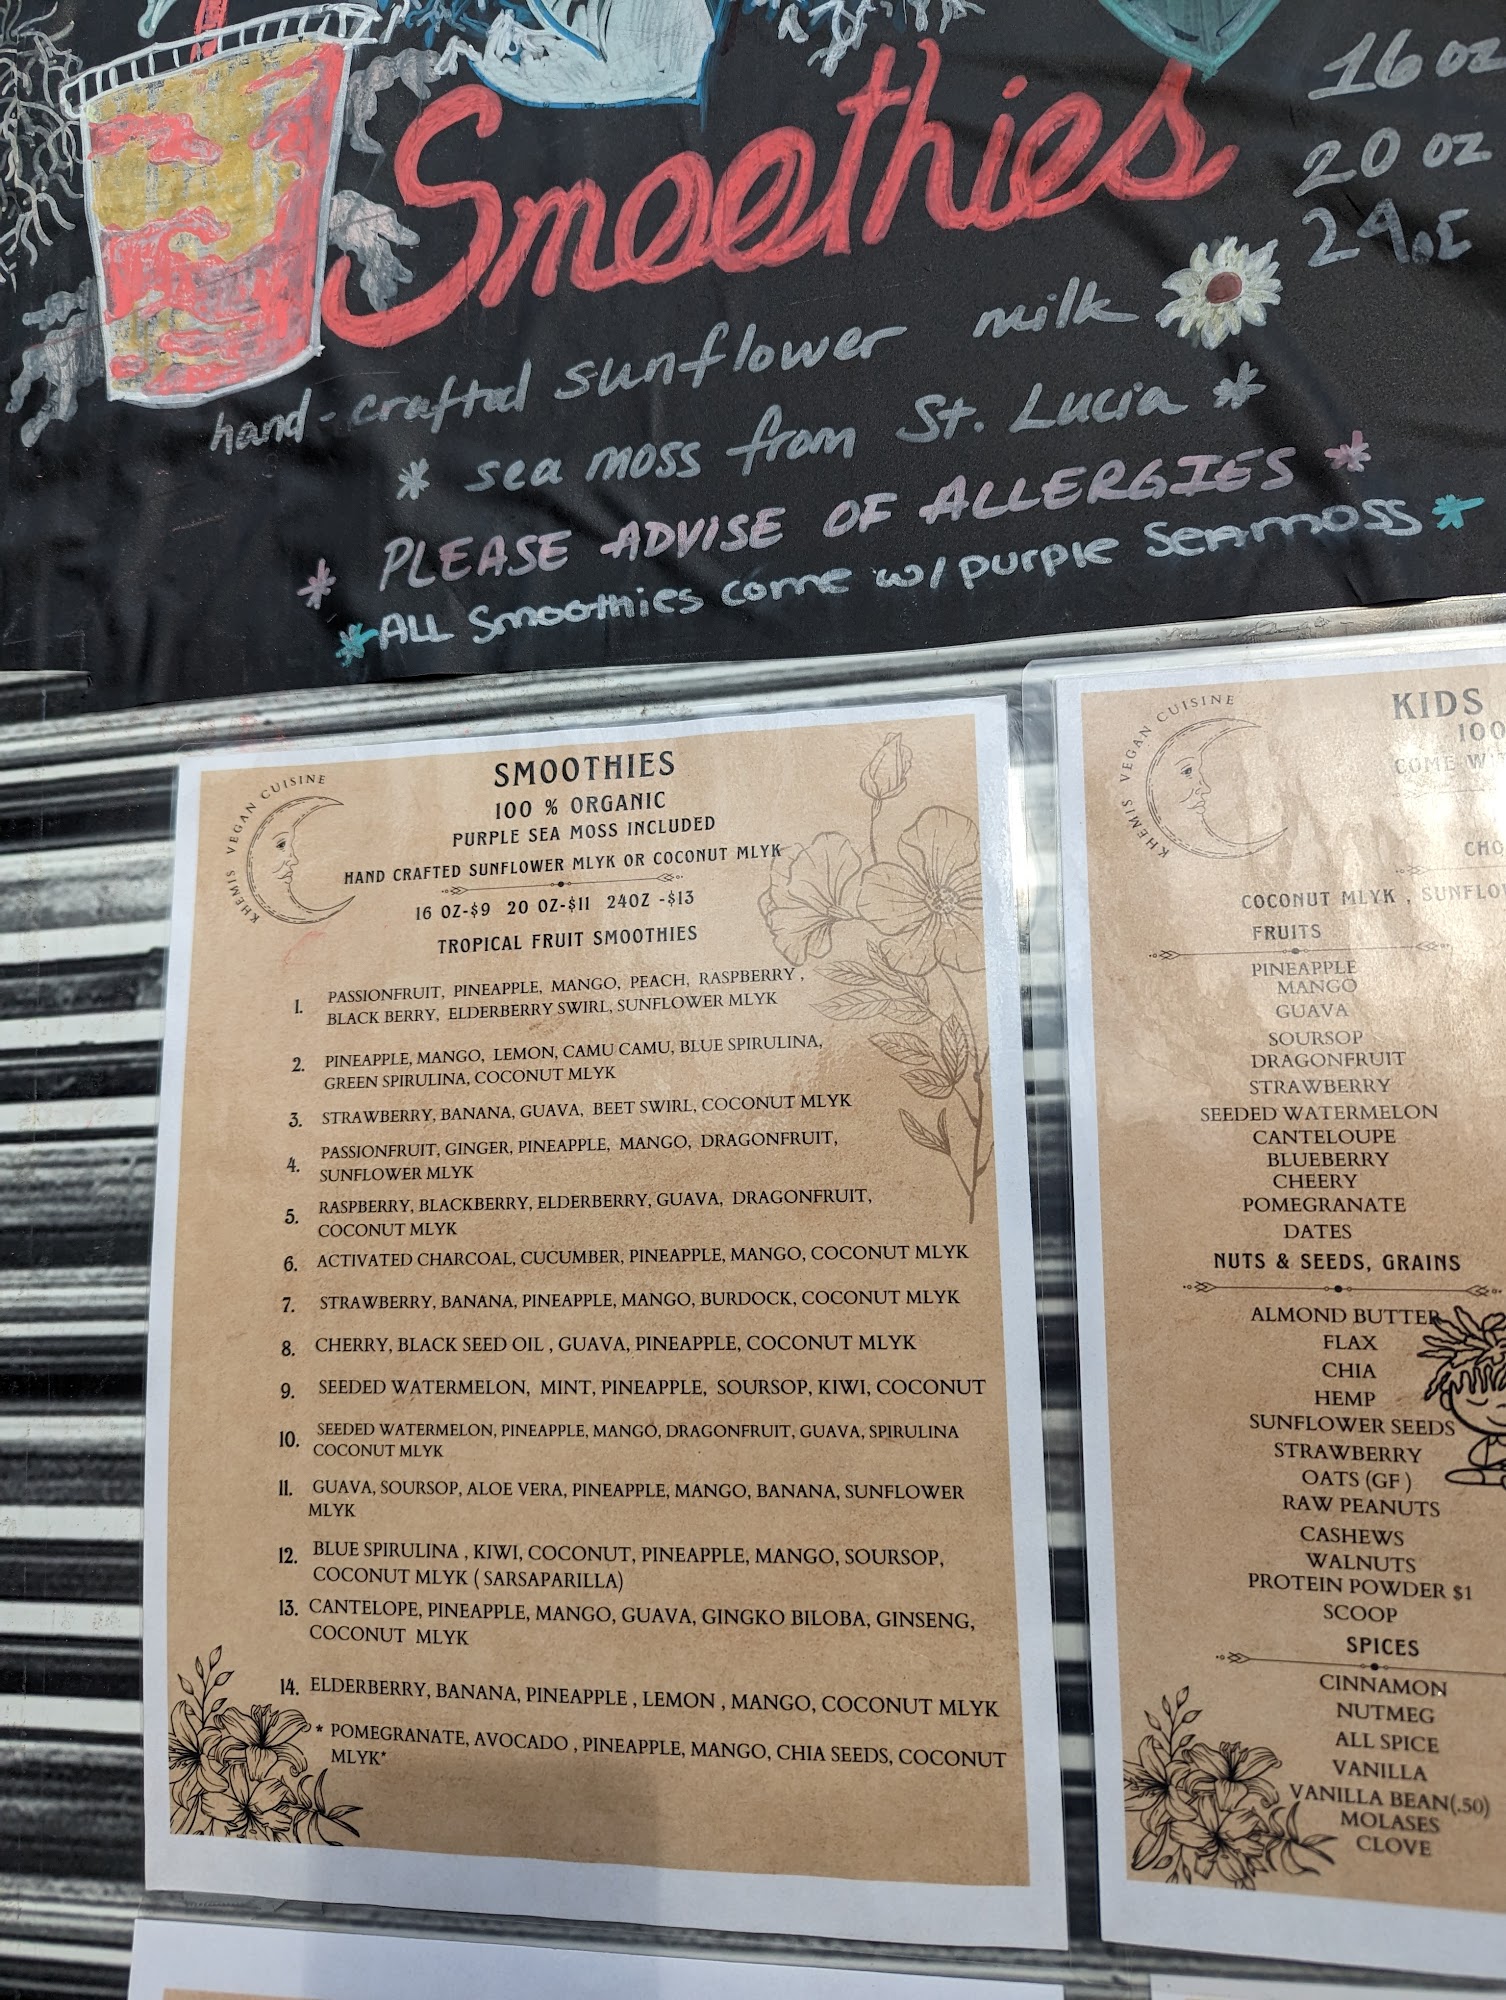 Smoothies
16 oz
20 oz
24 oz
hand-crafted sunflower milk
* sea moss from St. Lucia *
* PLEASE ADVISE OF ALLERGIES *
*ALL Smoothies come w/ purple Seamoss*
KHEMIS VEGAN CUISINE
SMOOTHIES
100 % ORGANIC
PURPLE SEA MOSS INCLUDED
HAND CRAFTED SUNFLOWER MLYK OR COCONUT MLYK
16 OZ-$9 20 OZ-$11 24OZ -$13
TROPICAL FRUIT SMOOTHIES
1. PASSIONFRUIT, PINEAPPLE, MANGO, PEACH, RASPBERRY ,
BLACK BERRY, ELDERBERRY SWIRL, SUNFLOWER MLYK
2. PINEAPPLE, MANGO, LEMON, CAMU CAMU, BLUE SPIRULINA,
GREEN SPIRULINA, COCONUT MLYK
3. STRAWBERRY, BANANA, GUAVA, BEET SWIRL, COCONUT MLYK
4. PASSIONFRUIT, GINGER, PINEAPPLE, MANGO, DRAGONFRUIT,
SUNFLOWER MLYK
5. RASPBERRY, BLACKBERRY, ELDERBERRY, GUAVA, DRAGONFRUIT,
COCONUT MLYK
6. ACTIVATED CHARCOAL, CUCUMBER, PINEAPPLE, MANGO, COCONUT MLYK
7. STRAWBERRY, BANANA, PINEAPPLE, MANGO, BURDOCK, COCONUT MLYK
8. CHERRY, BLACK SEED OIL , GUAVA, PINEAPPLE, COCONUT MLYK
9. SEEDED WATERMELON, MINT, PINEAPPLE, SOURSOP, KIWI, COCONUT
10. SEEDED WATERMELON, PINEAPPLE, MANGO, DRAGONFRUIT, GUAVA, SPIRULINA
COCONUT MLYK
11. GUAVA, SOURSOP, ALOE VERA, PINEAPPLE, MANGO, BANANA, SUNFLOWER
MLYK
12. BLUE SPIRULINA , KIWI, COCONUT, PINEAPPLE, MANGO, SOURSOP,
COCONUT MLYK ( SARSAPARILLA)
13. CANTELOPE, PINEAPPLE, MANGO, GUAVA, GINGKO BILOBA, GINSENG,
COCONUT MLYK
14. ELDERBERRY, BANANA, PINEAPPLE , LEMON , MANGO, COCONUT MLYK
* POMEGRANATE, AVOCADO , PINEAPPLE, MANGO, CHIA SEEDS, COCONUT
MLYK*
KHEMIS VEGAN CUISINE
KIDS
100
COME
CHO
COCONUT MLYK , SUNFLO
FRUITS
PINEAPPLE
MANGO
GUAVA
SOURSOP
DRAGONFRUIT
STRAWBERRY
SEEDED WATERMELON
CANTELOUPE
BLUEBERRY
CHEERY
POMEGRANATE
DATES
NUTS & SEEDS, GRAINS
ALMOND BUTTER
FLAX
CHIA
HEMP
SUNFLOWER SEEDS
STRAWBERRY
OATS (GF )
RAW PEANUTS
CASHEWS
WALNUTS
PROTEIN POWDER $1
SCOOP
SPICES
CINNAMON
NUTMEG
ALL SPICE
VANILLA
VANILLA BEAN(.50)
MOLASES
CLOVE